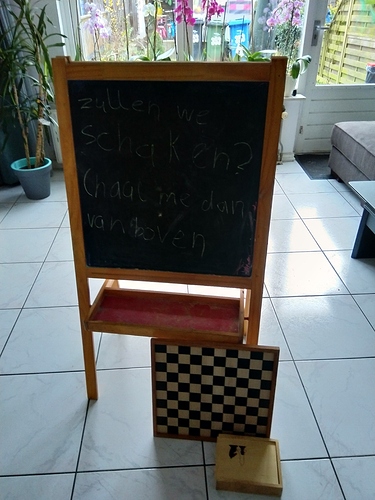 zullen we
schaken?
(haal me dan
van boven